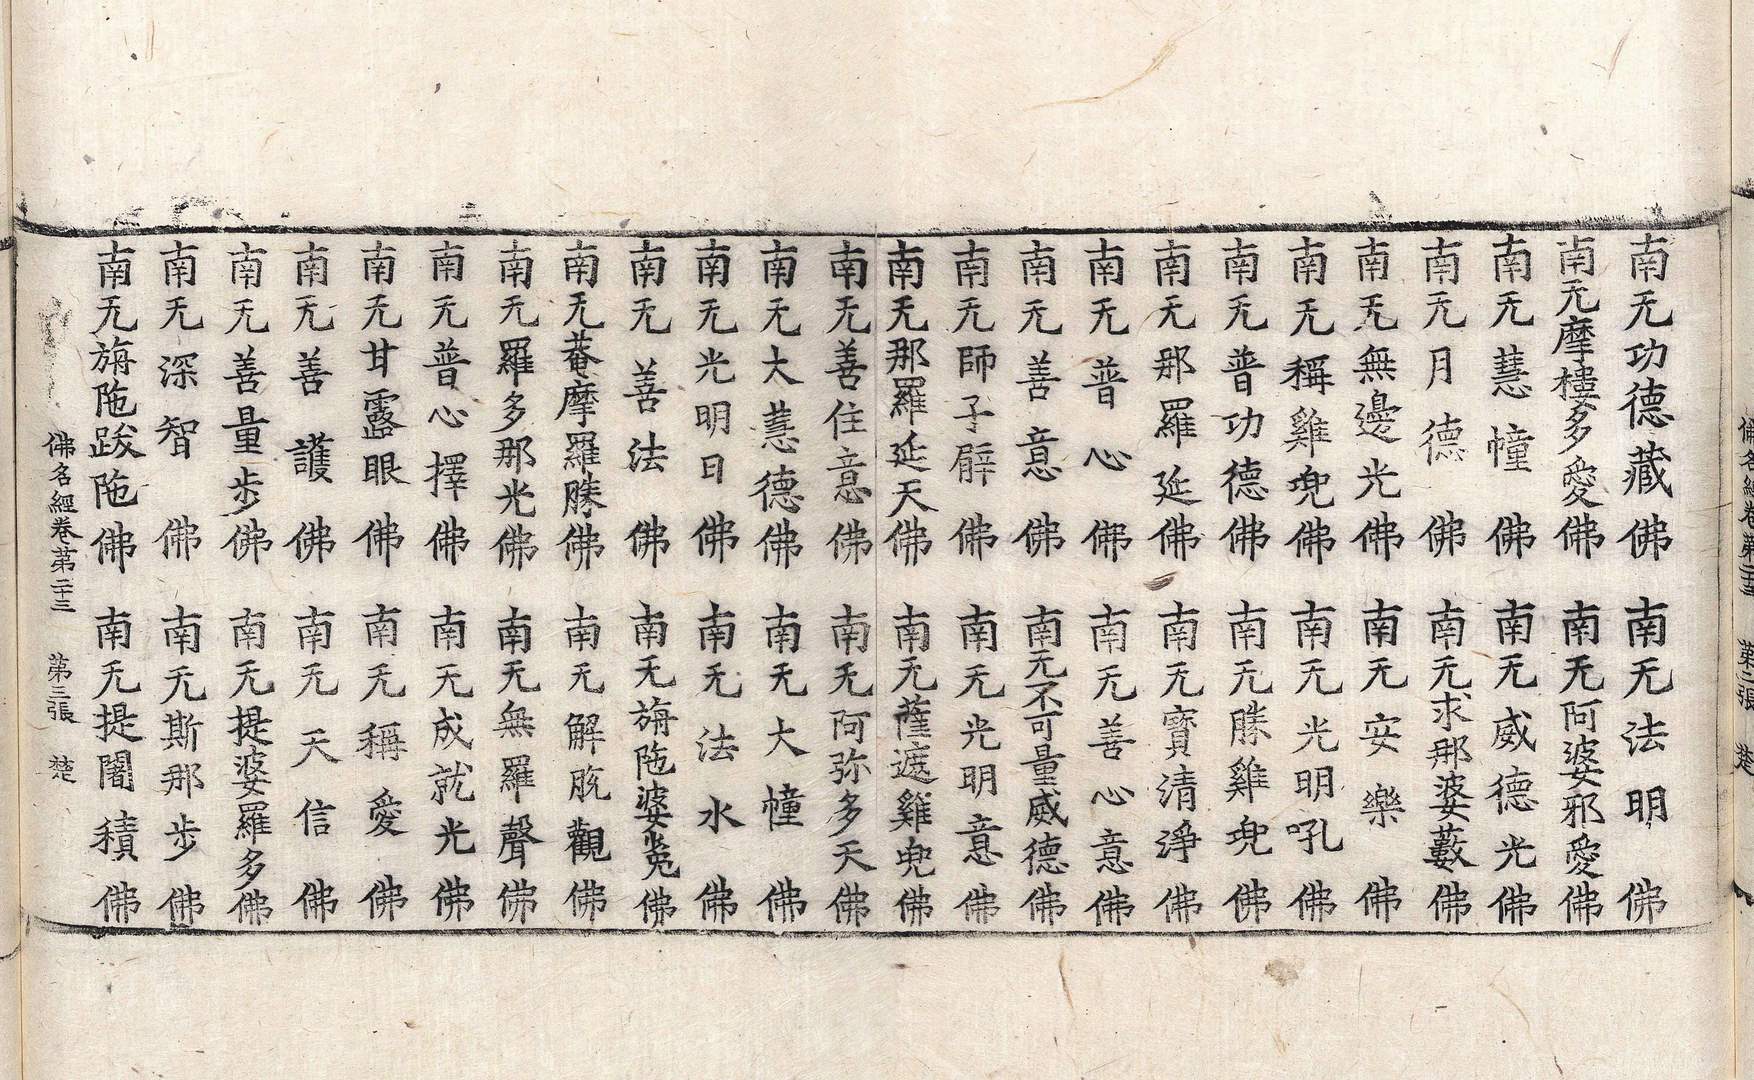 南无功德藏佛 南无法明佛
南无摩樓多愛佛 南无阿婆邪愛佛
南无慧幢佛 南无威德光佛
南无月德佛 南无求那婆藪佛
南无無邊光佛 南无安樂佛
南无稱雞兜佛 南无光明吼佛
南无普功德佛 南无勝雞兜佛
南无那羅延佛 南无寶清淨佛
南无普心佛 南无善心意佛
南无善意佛 南无不可量威德佛
南无師子臂佛 南无光明意佛
南无那羅延天佛 南无薩遮雞兜佛
南无善住意佛 南无阿弥多天佛
南无大慧德佛 南无大幢佛
南无光明日佛 南无法水佛
南无善法佛 南无旃陁婆㝹佛
南无菴摩羅勝佛 南无解脫觀佛
南无羅多那光佛 南无無羅聲佛
南无普心擇佛 南无成就光佛
南无甘露眼佛 南无稱愛佛
南无善護佛 南无天信佛
南无善量步佛 南无提婆羅多佛
南无深智佛 南无斯那步佛
南无旃陁跋陁佛 南无提闍積佛
佛名經卷第二十三 第三張 楚